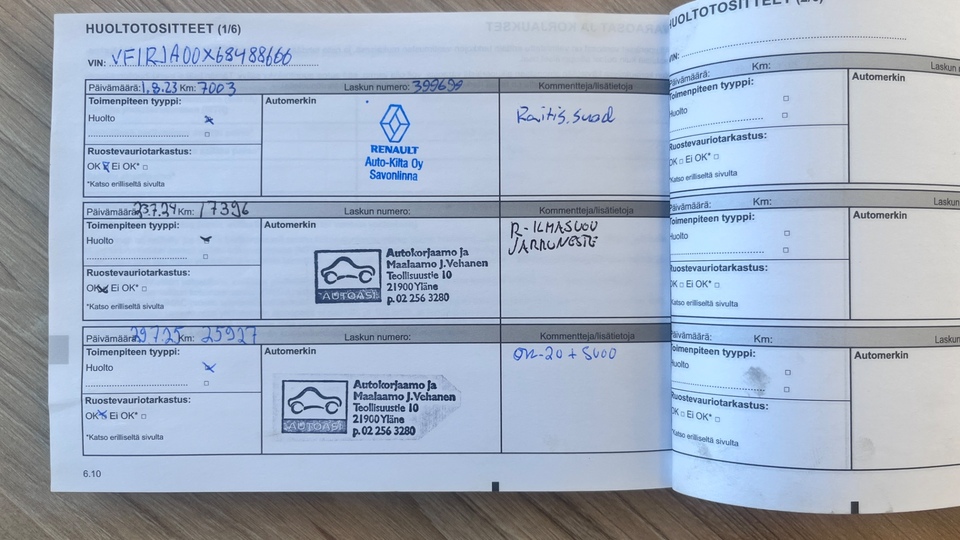 HUOLTOTOSITTEET (1/6)
VIN: VF1RJA00X68488666
Päivämäärä: 1.8.23 Km: 7003 Laskun numero: 399699 Kommentteja/lisätietoja
Toimenpiteen tyyppi: Automerkin Raitis.suod
Huolto
RENAULT
Auto-Kilta Oy
Savonlinna
Ruostevauriotarkastus:
OK Ei OK*
*Katso erilliseltä sivulta
Päivämäärä: 23.7.24 Km: 17396 Laskun numero: Kommentteja/lisätietoja
Toimenpiteen tyyppi: Automerkin R-ILMASUOD
JARRUNESTE
Huolto
Autokorjaamo ja
Maalaamo J.Vehanen
Teollisuustie 10
21900 Yläne
p. 02 256 3280
AUTOASI
Ruostevauriotarkastus:
OK Ei OK*
*Katso erilliseltä sivulta
Päivämäärä: 29.7.25 Km: 25927 Laskun numero: Kommentteja/lisätietoja
Toimenpiteen tyyppi: Automerkin
Huolto
Autokorjaamo ja
Maalaamo J.Vehanen
Teollisuustie 10
21900 Yläne
p. 02 256 3280
AUTOASI
Ruostevauriotarkastus:
OK Ei OK*
*Katso erilliseltä sivulta
6.10
HUOLTOTOSITTEET
VIN:
Päivämäärä: Km: Laskun
Toimenpiteen tyyppi: Automerkin
Huolto
Ruostevauriotarkastus:
OK Ei OK*
*Katso erilliseltä sivulta
Päivämäärä: Km: Laskun
Toimenpiteen tyyppi: Automerkin
Huolto
Ruostevauriotarkastus:
OK Ei OK*
*Katso erilliseltä sivulta
Päivämäärä: Km: Laskun
Toimenpiteen tyyppi: Automerkin
Huolto
Ruostevauriotarkastus:
OK Ei OK*
*Katso erilliseltä sivulta